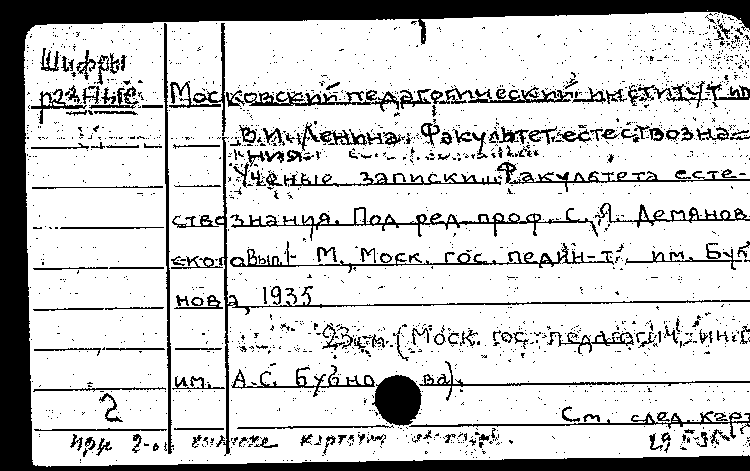 Шифры
разные
Московский педагогический институт им
В.И. Ленина. Факультет естествозна-
ния.
Ученые записки Факультета есте-
ствознания. Под ред. проф. С. Я. Демянов-
ского Вып. 1- М., Моск. гос. пединт. им. Буб
нова, 1935
23 см. (Моск. гос. педагогич. ин-т
им. А.С. Бубно ва).
2
См. след. карт
при 2-ом выпуске карточку